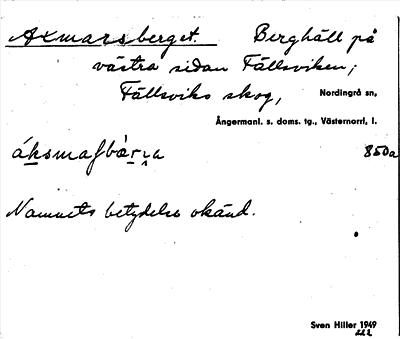 Axmarsberget. Berghäll på
västra sidan Fällsviken;
Fällsviks skog, Nordingrå sn,
Ångermanl. s. doms. tg., Västernorrl. l.
850a
Namnets betydelse okänd.
Sven Hiller 1949